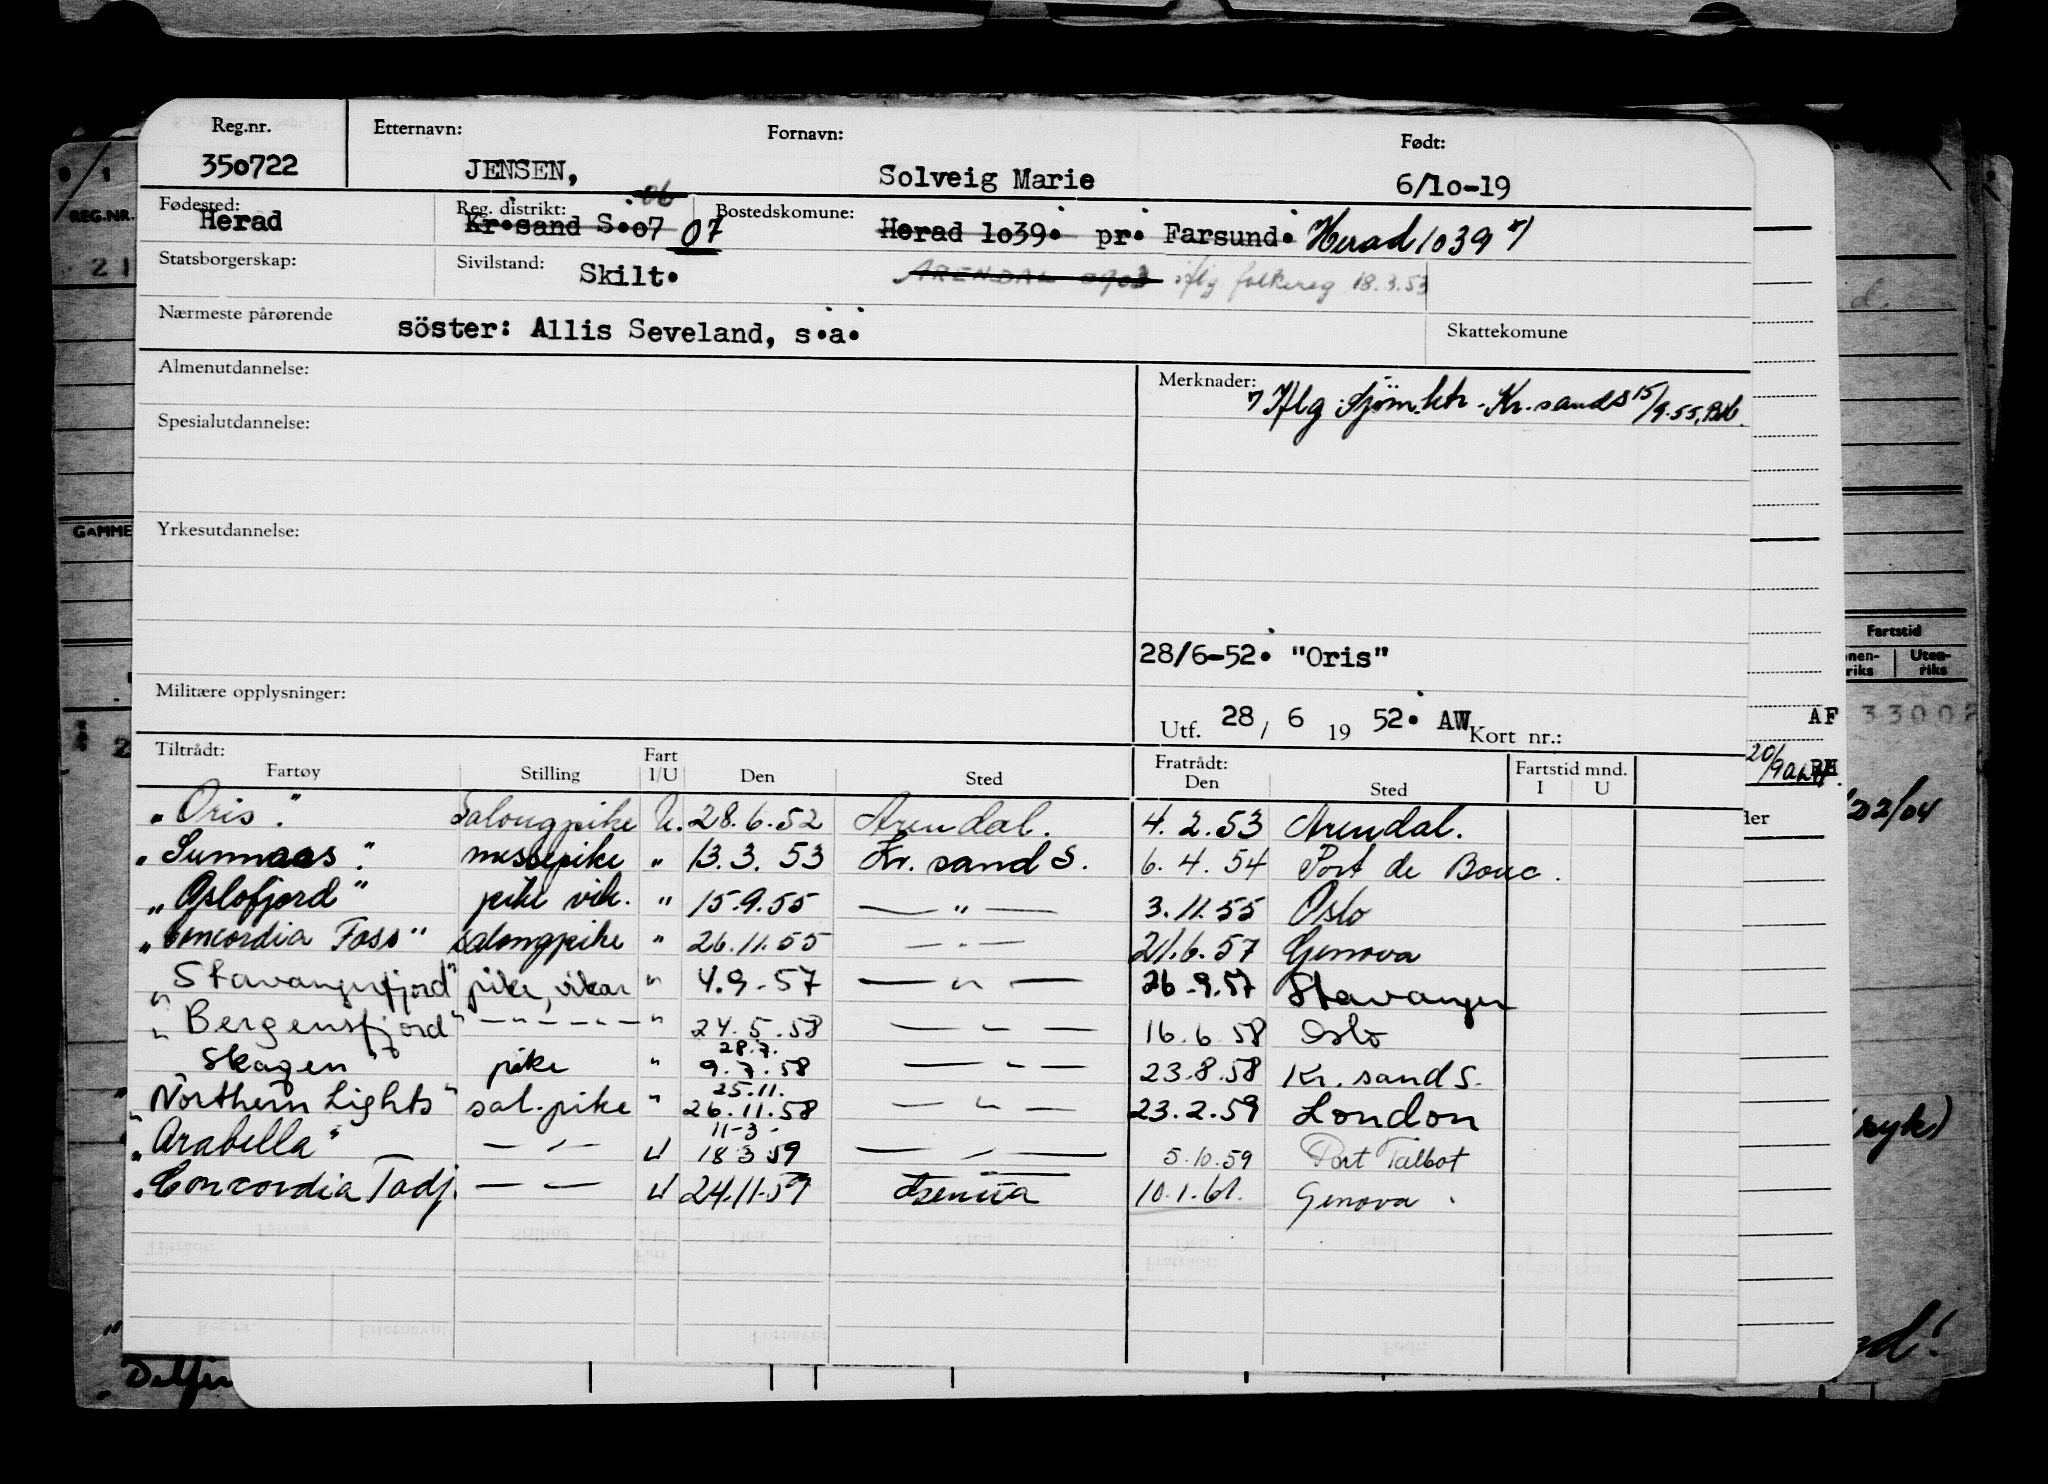 Reg.nr. Etternavn: Fornavn: Født:
350722 JENSEN, Solveig Marie 6/10-19
Fødested: Reg. distrikt: 06 Bostedskomune:
Herad Kr.sand S.07 07 Herad 1039. pr. Farsund. Herad 1039 7)
Statsborgerskap: Sivilstand: Skilt. ARENDAL 0903 iflg folkereg 18.3.53
Nærmeste pårørende söster: Allis Seveland, s.a. Skattekomune
Almenutdannelse: Merknader:
7 Iflg Sjöm.ktr. Kr.sand S 15/9.55,
Spesialutdannelse:
Yrkesutdannelse:
28/6-52. "Oris"
Militære opplysninger:
Utf. 28 / 6 19 52. AW Kort nr.:
Tiltrådt: Fart Fratrådt: Fartstid mnd.
Fartøy Stilling I/U Den Sted Den Sted I U
"Oris". Salongpike U. 28.6.52 Arendal. 4.2.53 Arendal.
"Sunnaas". messepike " 13.3.53 Kr.sand S. 6.4.54 Port de Bouc.
"Oslofjord" pike vik. " 15.9.55 — " — 3.11.55 Oslo
"Concordia Foss" salongpike " 26.11.55 — " — 21.6.57 Genova
"Stavangerfjord" pike, vikar " 4.9.57 — " — 26.9.57 Stavanger
"Bergensfjord" — " — " — " 24.5.58 — " — 16.6.58 Oslo
28.7.
Skagen" pike " 9.7.58 — " — 23.8.58 Kr.sand S.
25.11.
"Northern Lights" sal.pike " 26.11.58 — " — 23.2.59 London
11-3-
"Arabella" — " — U 18 3 59 — " — 5.10.59 Port Talbot
"Concordia Tadj. — " — U 24.11.59 Genua 10.1.61. Genova.
REG.NR.
21
GAMME
2
Fartstid
Uten-
riks
AF 33002
20/9
/02/04
(syk)